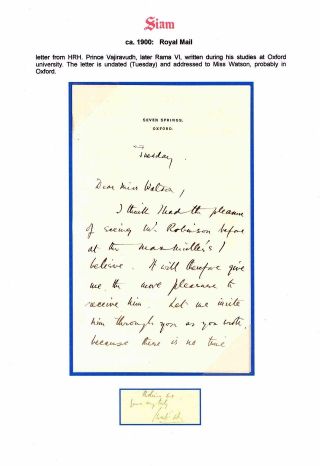 Siam
ca. 1900: Royal Mail
letter from HRH. Prince Vajiravudh, later Rama VI, written during his studies at Oxford
university. The letter is undated (Tuesday) and addressed to Miss Watson, probably in
Oxford.
SEVEN SPRINGS,
OXFORD.
Tuesday.
Dear Miss Watson,
I think I had the pleasure
of seeing Mr. Robinson before
at the I
believe. It will therefore give
me the more pleasure to
receive him. Let me invite
him through you as you wrote,
because there is no time